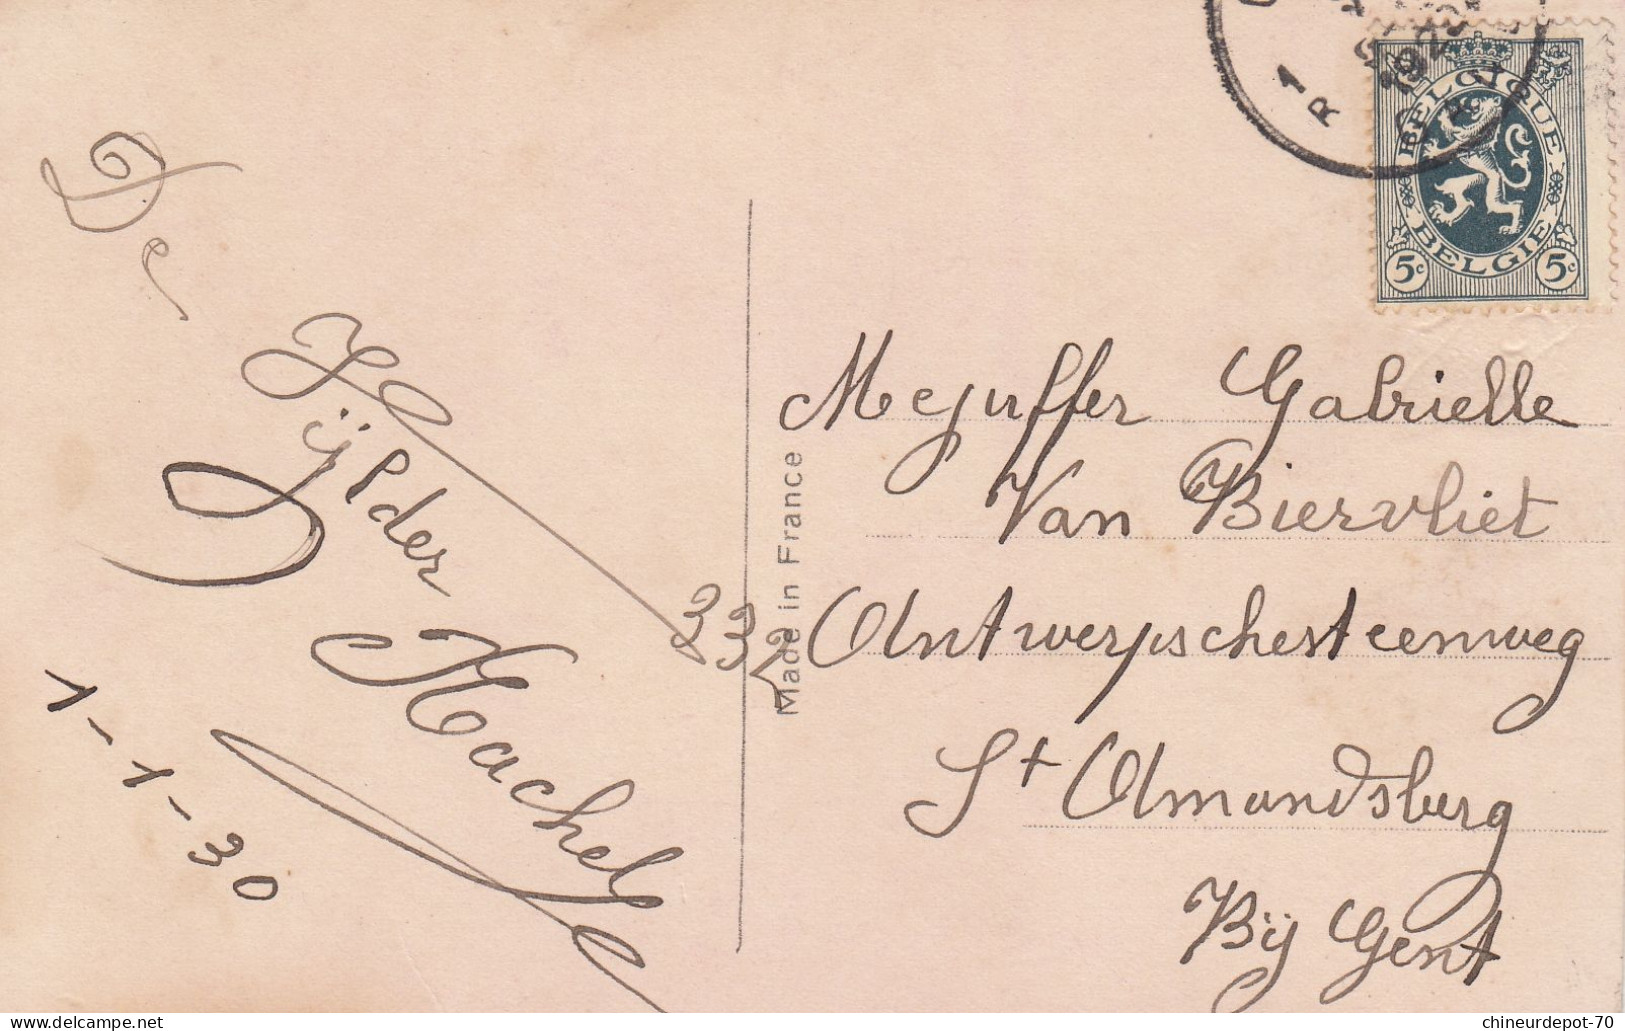 De
Zÿlder
Rachel
1-1-30
Made in France
1 R
1929
BELGIQUE
BELGIE
5c 5c
Mejuffer Gabrielle
Van Biervliet
332 Antwerpschesteenweg
St Amandsberg
Bÿ Gent
delcampe.net
chineurdepot-70